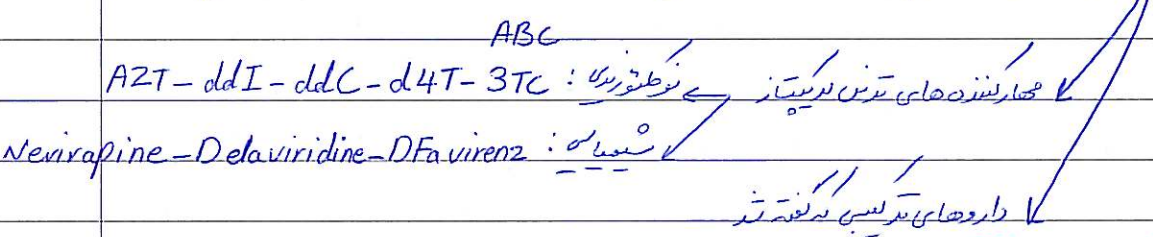 ABC
مهارکننده های ترنس کریپتاز نوکلئوزیدی : AZT - ddI - ddC - d4T - 3TC
شیمیایی : Nevirapine - Delaviridine - DFavirenz
داروهای ترکیبی که گفته شد